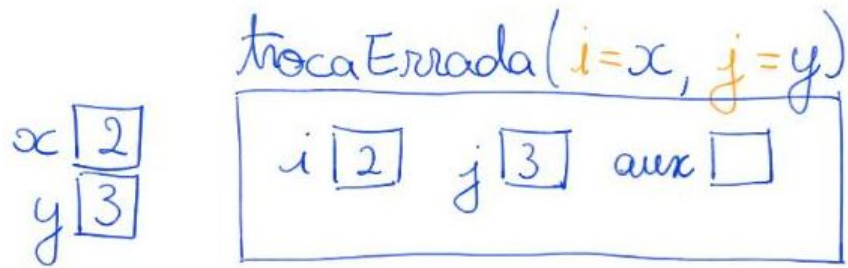 trocaErrada(i=x, j=y)
x 2
y 3
i 2 j 3 aux